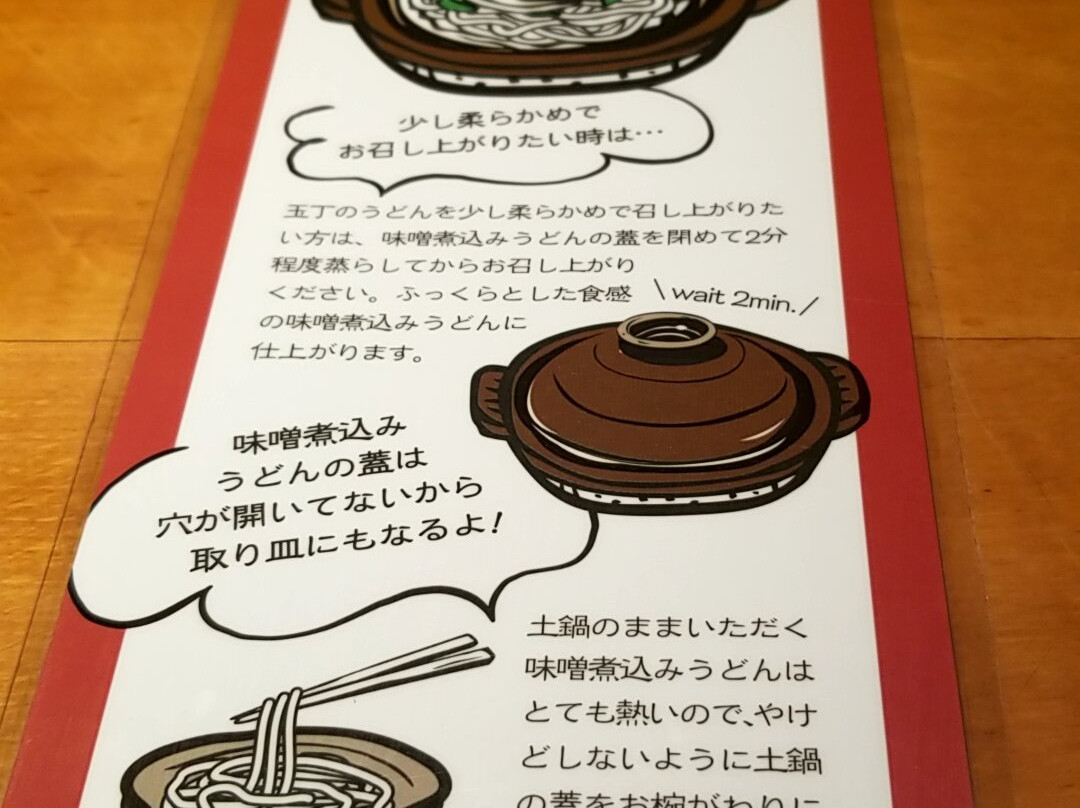 少し柔らかめで
お召し上がりたい時は…
玉丁のうどんを少し柔らかめで召し上がりた
い方は、味噌煮込みうどんの蓋を閉めて2分
程度蒸らしてからお召し上がり
ください。ふっくらとした食感
の味噌煮込みうどんに
仕上がります。
\wait 2min./
味噌煮込み
うどんの蓋は
穴が開いてないから
取り皿にもなるよ!
土鍋のままいただく
味噌煮込みうどんは
とても熱いので、やけ
どしないように土鍋
の蓋をお椀がわりに